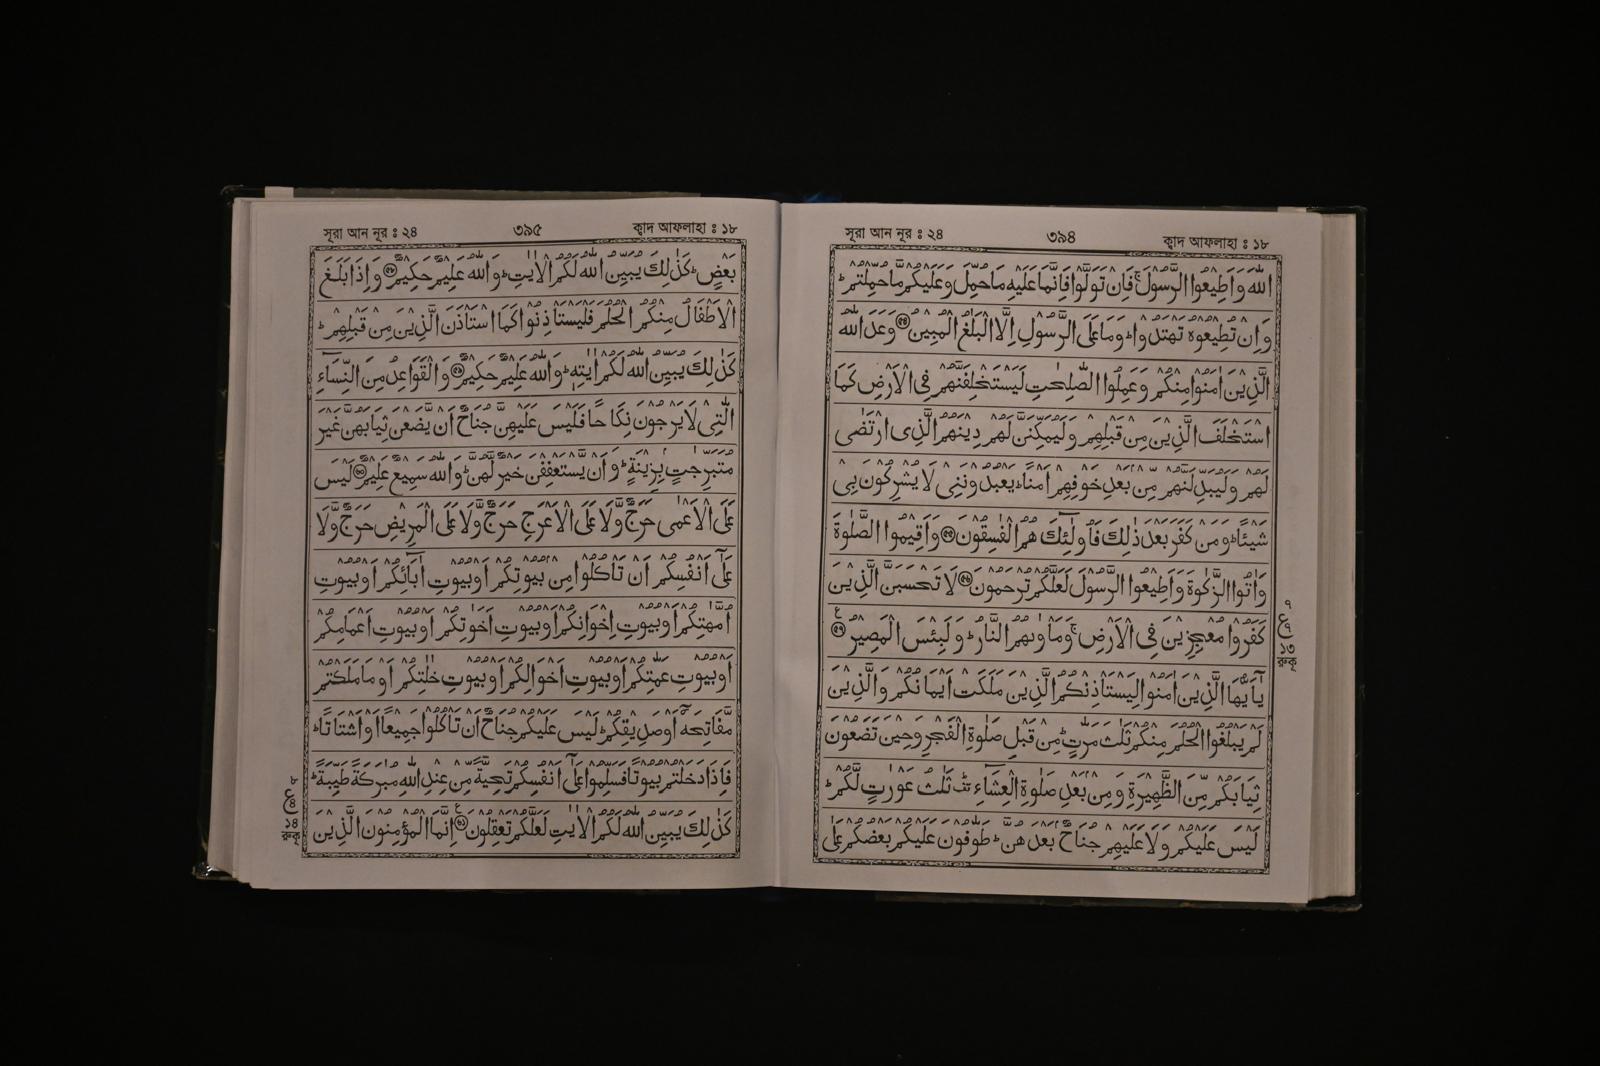 সূরা আন নূর : ২৪ ৩৯৪ ক্বাদ আফলাহা : ১৮
اللّٰهَ وَاَطِيْعُوا الرَّسُوْلَ ۚ فَاِنْ تَوَلَّوْا فَاِنَّمَا عَلَيْهِ مَا حُمِّلَ وَعَلَيْكُمْ مَّا حُمِّلْتُمْ ؕ
وَاِنْ تُطِيْعُوْهُ تَهْتَدُوْا ؕ وَمَا عَلَى الرَّسُوْلِ اِلَّا الْبَلٰغُ الْمُبِيْنُ ﴿৫৪﴾ وَعَدَ اللّٰهُ
الَّذِيْنَ اٰمَنُوْا مِنْكُمْ وَعَمِلُوا الصّٰلِحٰتِ لَيَسْتَخْلِفَنَّهُمْ فِى الْاَرْضِ كَمَا
اسْتَخْلَفَ الَّذِيْنَ مِنْ قَبْلِهِمْ وَلَيُمَكِّنَنَّ لَهُمْ دِيْنَهُمُ الَّذِى ارْتَضٰى
لَهُمْ وَلَيُبَدِّلَنَّهُمْ مِّنْۢ بَعْدِ خَوْفِهِمْ اَمْنًا ؕ يَعْبُدُوْنَنِىْ لَا يُشْرِكُوْنَ بِىْ
شَيْئًا ؕ وَمَنْ كَفَرَ بَعْدَ ذٰلِكَ فَاُولٰٓئِكَ هُمُ الْفٰسِقُوْنَ ﴿৫৫﴾ وَاَقِيْمُوا الصَّلٰوةَ
وَاٰتُوا الزَّكٰوةَ وَاَطِيْعُوا الرَّسُوْلَ لَعَلَّكُمْ تُرْحَمُوْنَ ﴿৫৬﴾ لَا تَحْسَبَنَّ الَّذِيْنَ
كَفَرُوْا مُعْجِزِيْنَ فِى الْاَرْضِ ۚ وَمَاْوٰىهُمُ النَّارُ ؕ وَلَبِئْسَ الْمَصِيْرُ ﴿৫৭﴾
يٰۤاَيُّهَا الَّذِيْنَ اٰمَنُوْا لِيَسْتَاْذِنْكُمُ الَّذِيْنَ مَلَكَتْ اَيْمَانُكُمْ وَالَّذِيْنَ
لَمْ يَبْلُغُوا الْحُلُمَ مِنْكُمْ ثَلٰثَ مَرّٰتٍ ؕ مِنْ قَبْلِ صَلٰوةِ الْفَجْرِ وَحِيْنَ تَضَعُوْنَ
ثِيَابَكُمْ مِّنَ الظَّهِيْرَةِ وَمِنْۢ بَعْدِ صَلٰوةِ الْعِشَآءِ ؕ ثَلٰثُ عَوْرٰتٍ لَّكُمْ ؕ
لَيْسَ عَلَيْكُمْ وَلَا عَلَيْهِمْ جُنَاحٌۢ بَعْدَهُنَّ ؕ طَوّٰفُوْنَ عَلَيْكُمْ بَعْضُكُمْ عَلٰى
ع
১৩
রুকূ
সূরা আন নূর : ২৪ ৩৯৫ ক্বাদ আফলাহা : ১৮
بَعْضٍ ؕ كَذٰلِكَ يُبَيِّنُ اللّٰهُ لَكُمُ الْاٰيٰتِ ؕ وَاللّٰهُ عَلِيْمٌ حَكِيْمٌ ﴿৫৮﴾ وَاِذَا بَلَغَ
الْاَطْفَالُ مِنْكُمُ الْحُلُمَ فَلْيَسْتَاْذِنُوْا كَمَا اسْتَاْذَنَ الَّذِيْنَ مِنْ قَبْلِهِمْ ؕ
كَذٰلِكَ يُبَيِّنُ اللّٰهُ لَكُمْ اٰيٰتِهٖ ؕ وَاللّٰهُ عَلِيْمٌ حَكِيْمٌ ﴿৫৯﴾ وَالْقَوَاعِدُ مِنَ النِّسَآءِ
الّٰتِىْ لَا يَرْجُوْنَ نِكَاحًا فَلَيْسَ عَلَيْهِنَّ جُنَاحٌ اَنْ يَّضَعْنَ ثِيَابَهُنَّ غَيْرَ
مُتَبَرِّجٰتٍۭ بِزِيْنَةٍ ؕ وَاَنْ يَّسْتَعْفِفْنَ خَيْرٌ لَّهُنَّ ؕ وَاللّٰهُ سَمِيْعٌ عَلِيْمٌ ﴿৬০﴾ لَيْسَ
عَلَى الْاَعْمٰى حَرَجٌ وَّلَا عَلَى الْاَعْرَجِ حَرَجٌ وَّلَا عَلَى الْمَرِيْضِ حَرَجٌ وَّلَا
عَلٰٓى اَنْفُسِكُمْ اَنْ تَاْكُلُوْا مِنْۢ بُيُوْتِكُمْ اَوْ بُيُوْتِ اٰبَآئِكُمْ اَوْ بُيُوْتِ
اُمَّهٰتِكُمْ اَوْ بُيُوْتِ اِخْوَانِكُمْ اَوْ بُيُوْتِ اَخَوٰتِكُمْ اَوْ بُيُوْتِ اَعْمَامِكُمْ
اَوْ بُيُوْتِ عَمّٰتِكُمْ اَوْ بُيُوْتِ اَخْوَالِكُمْ اَوْ بُيُوْتِ خٰلٰتِكُمْ اَوْ مَا مَلَكْتُمْ
مَّفَاتِحَهٗٓ اَوْ صَدِيْقِكُمْ ؕ لَيْسَ عَلَيْكُمْ جُنَاحٌ اَنْ تَاْكُلُوْا جَمِيْعًا اَوْ اَشْتَاتًا ؕ
فَاِذَا دَخَلْتُمْ بُيُوْتًا فَسَلِّمُوْا عَلٰٓى اَنْفُسِكُمْ تَحِيَّةً مِّنْ عِنْدِ اللّٰهِ مُبٰرَكَةً طَيِّبَةً ؕ
كَذٰلِكَ يُبَيِّنُ اللّٰهُ لَكُمُ الْاٰيٰتِ لَعَلَّكُمْ تَعْقِلُوْنَ ﴿৬১﴾ اِنَّمَا الْمُؤْمِنُوْنَ الَّذِيْنَ
ع
১৪
রুকূ